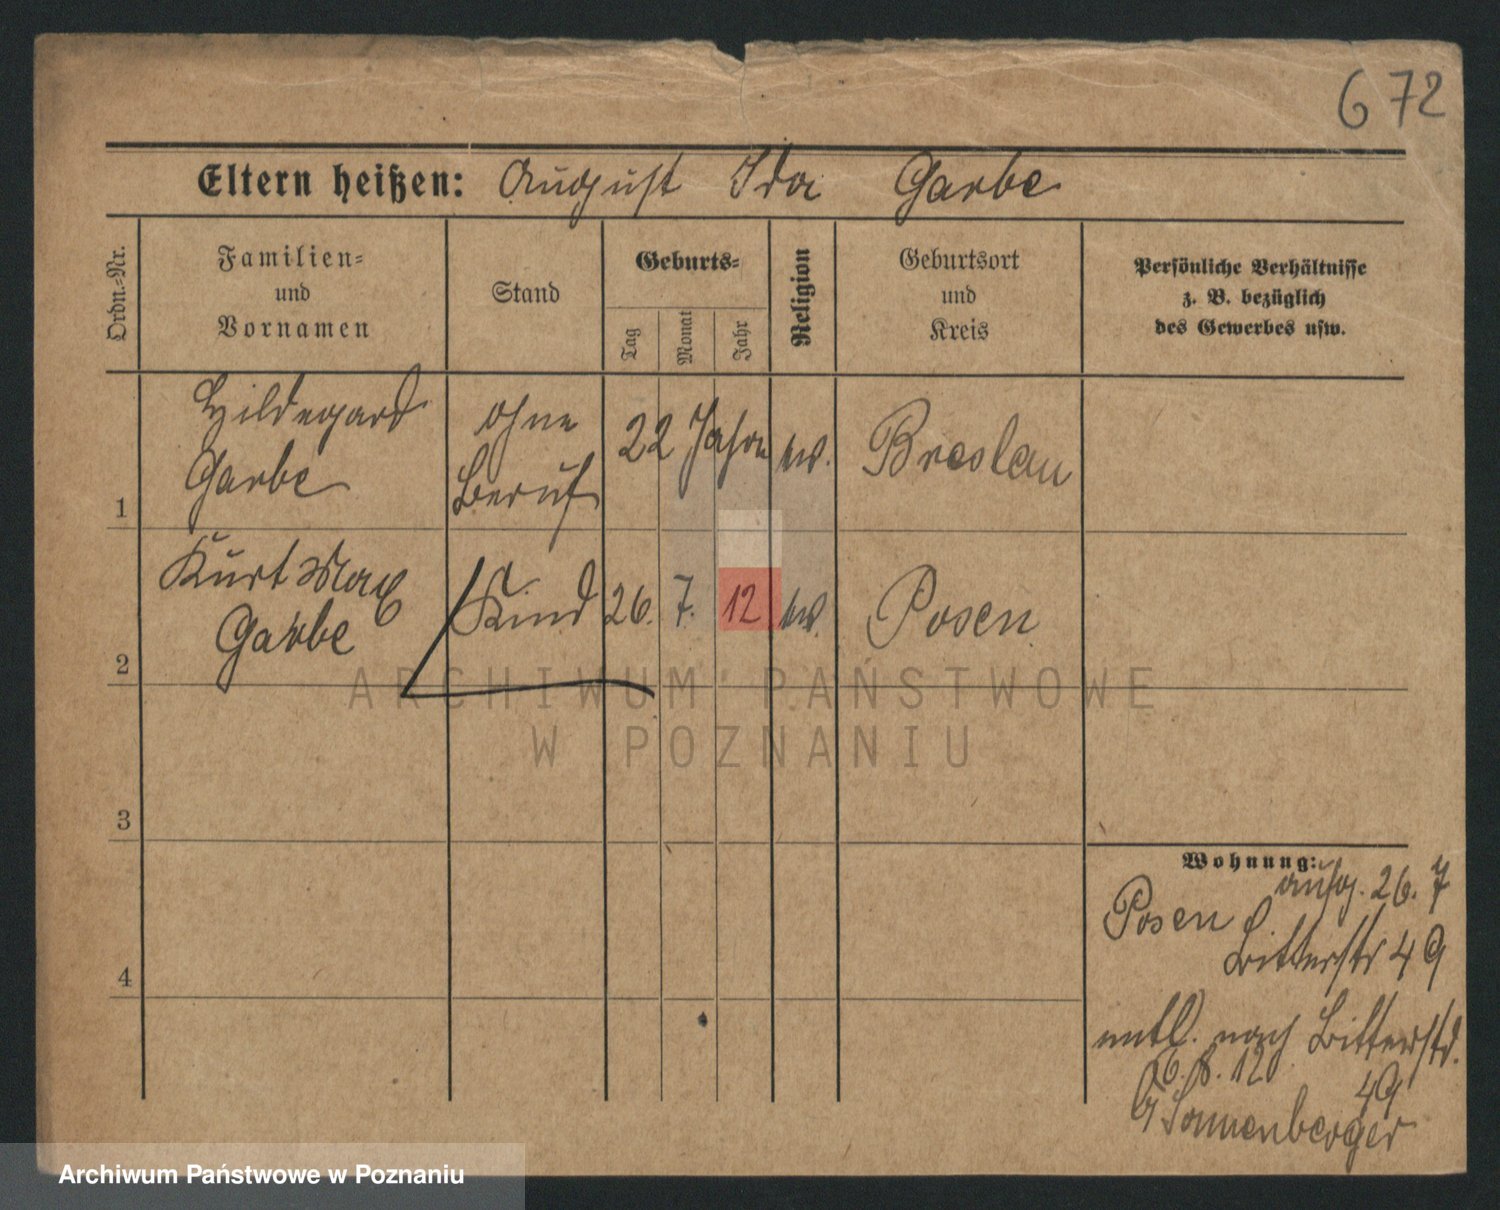 672
Eltern heißen: August Ida Garbe
Ordn.-Nr.
Familien-
und
Vornamen
Stand
Geburts-
Tag
Monat
Jahr
Religion
Geburtsort
und
Kreis
Persönliche Verhältnisse
z. B. bezüglich
des Gewerbes usw.
1
Hildegard
Garbe
ohne
Beruf
22 Jahre
ev.
Breslau
2
Kurt Max
Garbe
Kind
26. 7. 12
ev.
Posen
ARCHIWUM PAŃSTWOWE
W POZNANIU
3
4
Wohnung:
aufg. 26. 7
Posen
Bitterstr 49
entl. nach Bitterstr.
6. 8. 12
49
Sonnenberger
Archiwum Państwowe w Poznaniu